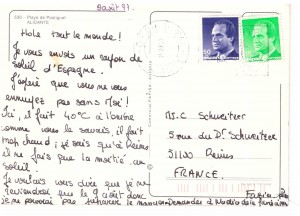 9 août 97.
Playa de Postiguet
ALICANTE
Hola tout le monde!
Je vous envois un rayon de
soleil d'Espagne.
J'espère que vous ne vous
ennuyez pas sans moi!
Ici, il fait 40°C à l'ombre
comme vous le savais, il fait
moi, chaud; je sais qu'à Reims
il ne fais que la moitié au
soleil.
Je voulais vous dire que je ne
reviendrai que le 9 août donc
je ne pourrai pas
M.C Schweitzer
5 rue du Dr Schweitzer
51100 Reims
FRANCE